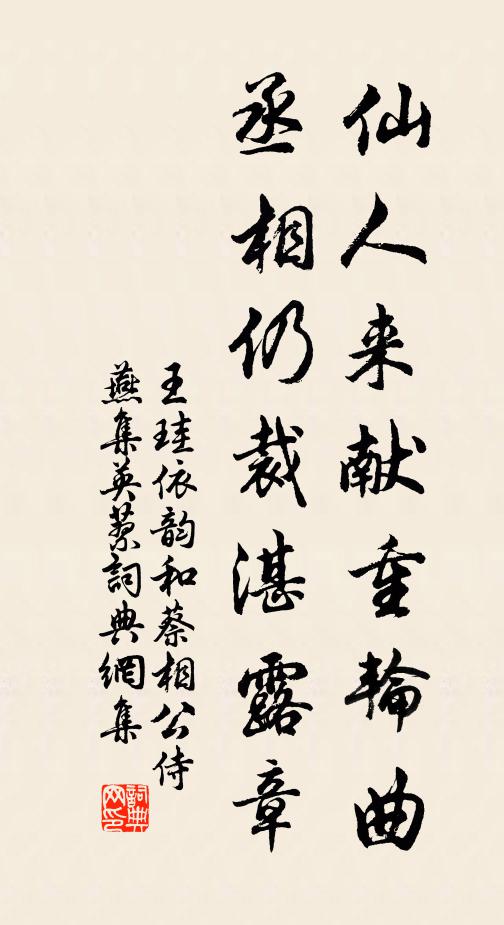 仙人来献重輪曲
丞相仍裁湛露章
王珪依韵和蔡相公侍
燕集英蔡詞典網集
詞典网印